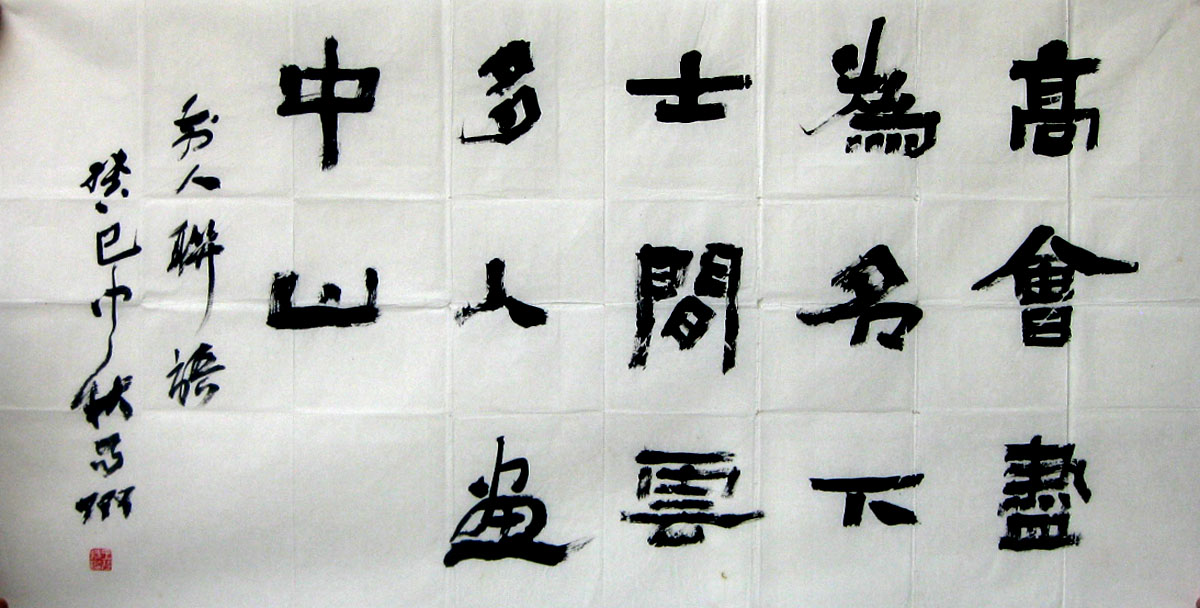 高會盡
為名下
士間雲
多入畫
中山
前人聯語
癸巳中秋